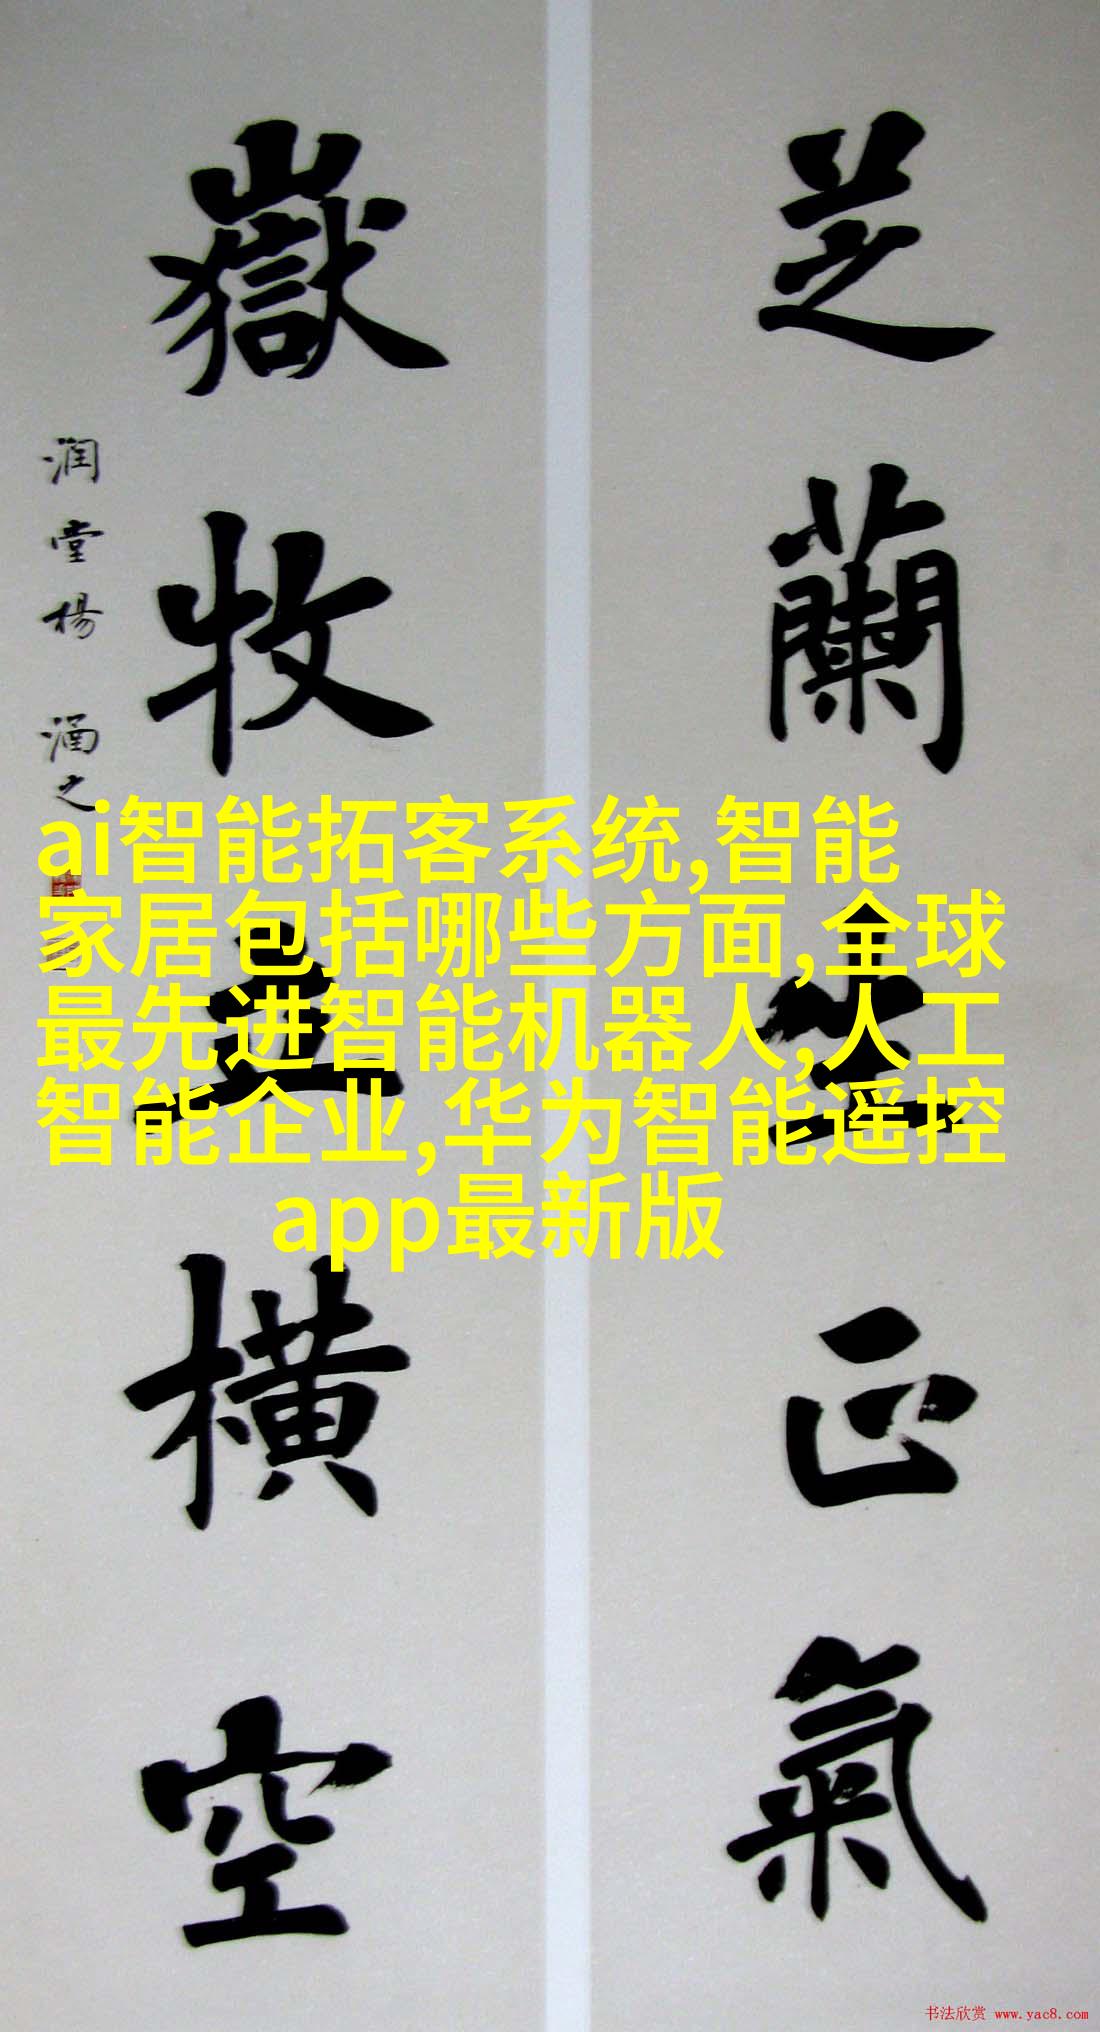 芝蘭生正氣
嶽牧立橫空
润堂楊涵之
ai智能拓客系统,智能
家居包括哪些方面,全球
最先进智能机器人,人工
智能企业,华为智能遥控
app最新版
书法欣赏 www.yac8.com